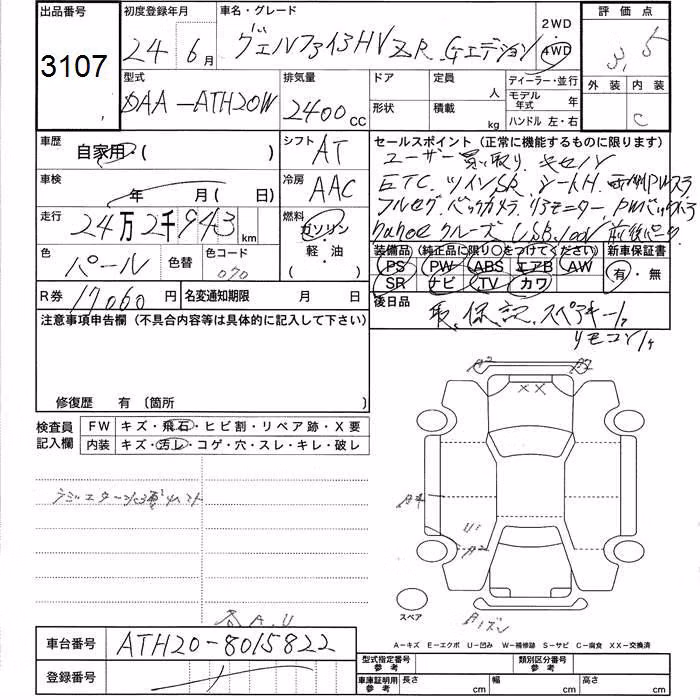 出品番号
3107
初度登録年月
24年 6月
車名・グレード
ヴェルファイアHV ZR Gエディション
2WD
4WD
評価点
3.5
外装 内装
C
型式
DAA-ATH20W
排気量
2400cc
ドア
形状
定員
人
積載
kg
ディーラー・並行
モデル年式 年
ハンドル 左・右
車歴
自家用・( )
シフト
AT
セールスポイント(正常に機能するものに限ります)
ユーザー買取り
車検
年 月( 日)
冷房
AAC
ETC. ツインSR. シートH. 両側PWスラ
走行
24万2千943km
燃料
ガソリン
軽・油
( )
フルセグ. バックカメラ. リアモニター. PWバックドア
nanoe クルーズ USB.100V 前後パーク.
色
パール
色替
色コード
070
装備品(純正品に限り○をつけてください)
PS PW ABS エアB AW
SR ナビ TV カワ
新車保証書
有・無
R券 17060円
名変通知期限 月 日
後日品
取.保.記.スペアキー1ヶ
リモコン1ヶ
注意事項申告欄(不具合内容等は具体的に記入して下さい)
修復歴 有〔箇所 〕
検査員記入欄
FW キズ・飛石・ヒビ割・リペア跡・X要
内装 キズ・汚レ・コゲ・穴・スレ・キレ・破レ
A2
XX
A4
U1
A2
スペア
各A.U
A-キズ E-エクボ U-凹み W-補修跡 S-サビ C-腐食 XX-交換済
車台番号
ATH20-8015822
登録番号
型式指定番号 参考
類別区分番号 参考
車庫証明用 参考
長さ cm
幅 cm
高さ cm